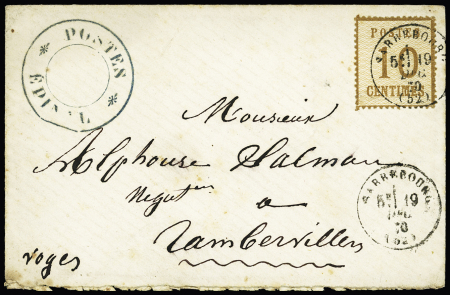 * POSTEN *
ÉPINAL
POSTES
10
CENTIMES
SARREBOURG
5E 19
DEC.
70
(52)
Monsieur
Alphonse Salman
Negot^nt
a
Rambervillers
Vosges
SARREBOURG
5E 19
DEC.
70
(52)